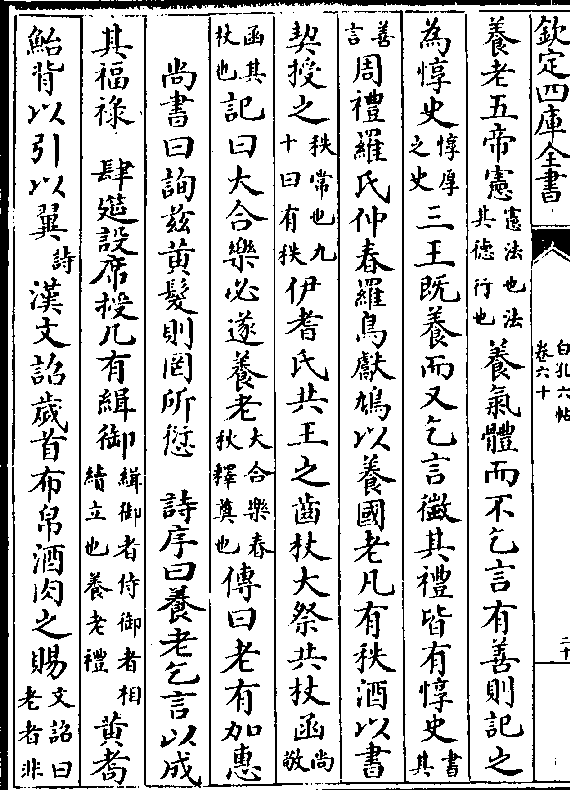 欽定四庫全書
白孔六帖
卷六十
二十
養老五帝憲憲法也法其德行也養氣體而不乞言有善則記之
為惇史惇厚之史三王既養而又乞言微其禮皆有惇史書其
善言周禮羅氏仲春羅鳥獻鳩以養國老凡有秩酒以書
契授之秩常也九十曰有秩伊耆氏共王之齒杖大祭共杖函尚敬
函其杖也記曰大合樂必遂養老大合樂春秋釋奠也傳曰老有加惠
尚書曰詢兹黄髮則罔所愆　詩序曰養老乞言以成
其福禄　肆筵設席授几有緝御緝御者侍御者相續立也養老禮黄耇
鮐背以引以翼詩漢文詔歲首布帛酒肉之賜文詔曰老者非